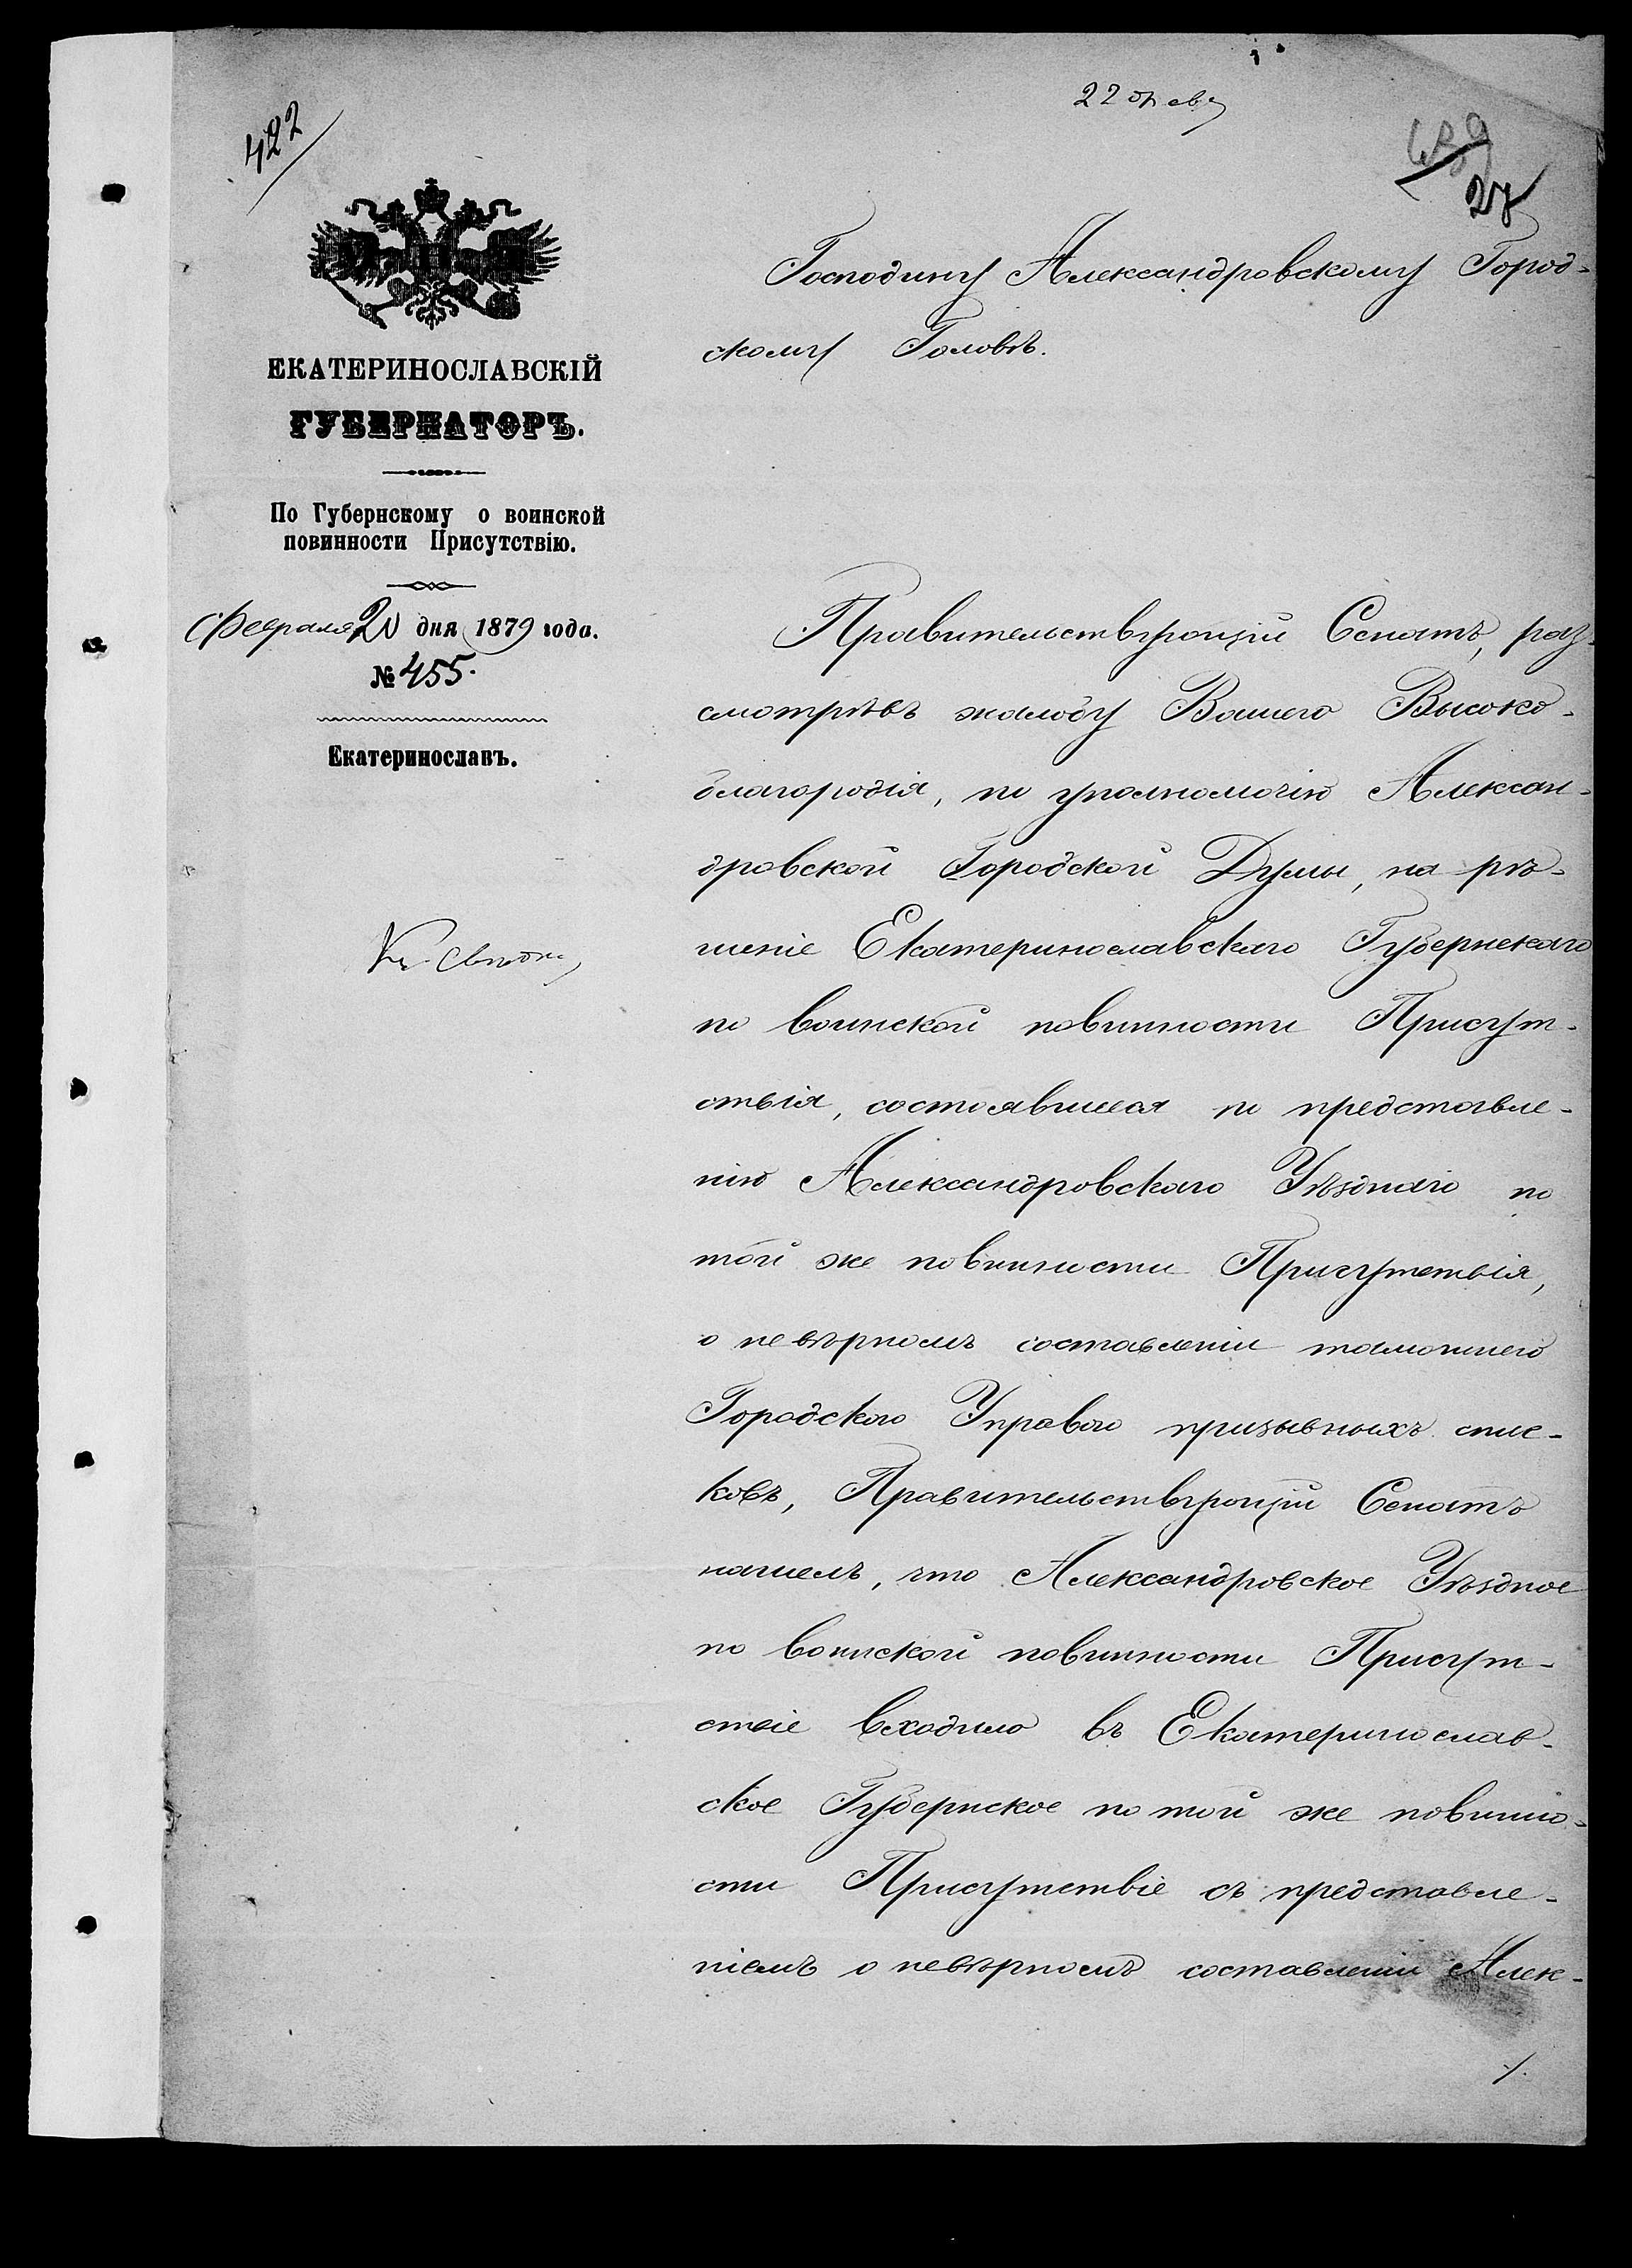 22 Февр
422
27
ЕКАТЕРИНОСЛАВСКІЙ
ГУБЕРНАТОРЪ.
По Губернскому о воинской
повинности Присутствію.
Февраля 20 дня 1879 года.
№ 455.
Екатеринославъ.
Господину Александровскому Город-
скому Головѣ.
Правительствующій Сенатъ, раз-
смотрѣвъ жалобу Вашего Высоко-
благородія, по уполномочію Алексан-
дровской Городской Думы, на рѣ-
шеніе Екатеринославскаго Губернскаго
по воинской повинности Присут-
ствія, состоявшееся по представле-
нію Александровскаго Уѣзднаго по
той же повинности Присутствія,
о невѣрномъ составленіи тамошнею
Городскою Управою призывныхъ спис-
ковъ, Правительствующій Сенатъ
нашелъ, что Александровское Уѣздное
по воинской повинности Присут-
ствіе входило въ Екатеринослав-
ское Губернское по той же повинно-
сти Присутствіе съ представле-
ніемъ о невѣрномъ составленіи Алек-